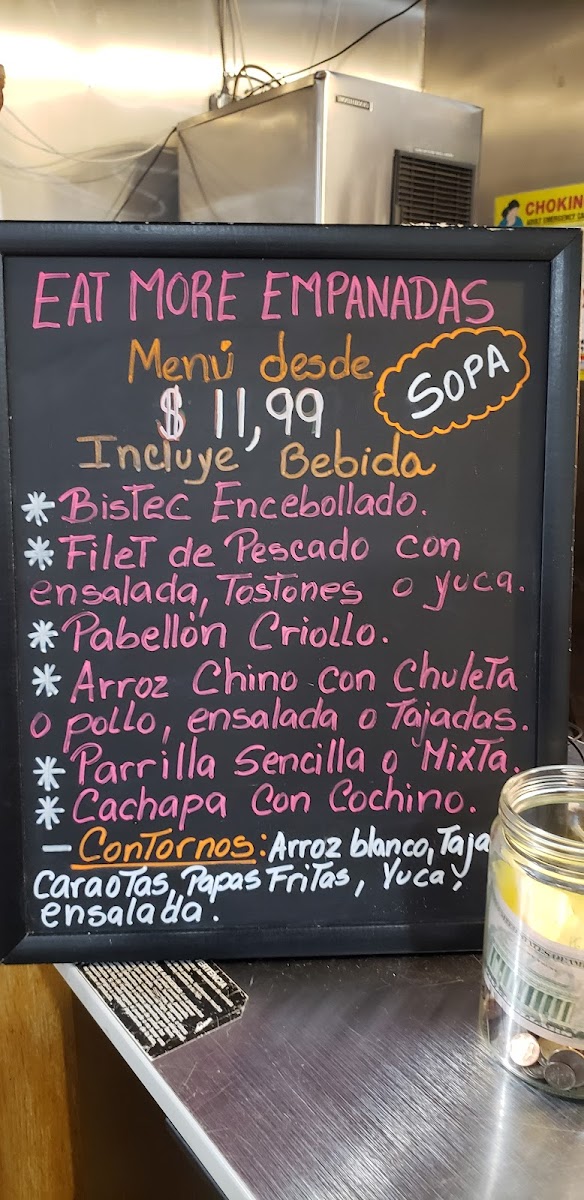 CHOKIN
EAT MORE EMPANADAS
Menú desde
SOPA
$ 11,99
Incluye Bebida
* Bistec Encebollado.
* Filet de Pescado con
ensalada, Tostones o yuca.
* Pabellón Criollo.
* Arroz Chino con Chuleta
o pollo, ensalada o Tajadas.
* Parrilla Sencilla o Mixta.
* Cachapa con Cochino.
- Contornos: Arroz blanco, Taja
Caraotas, Papas Fritas, Yuca,
ensalada.